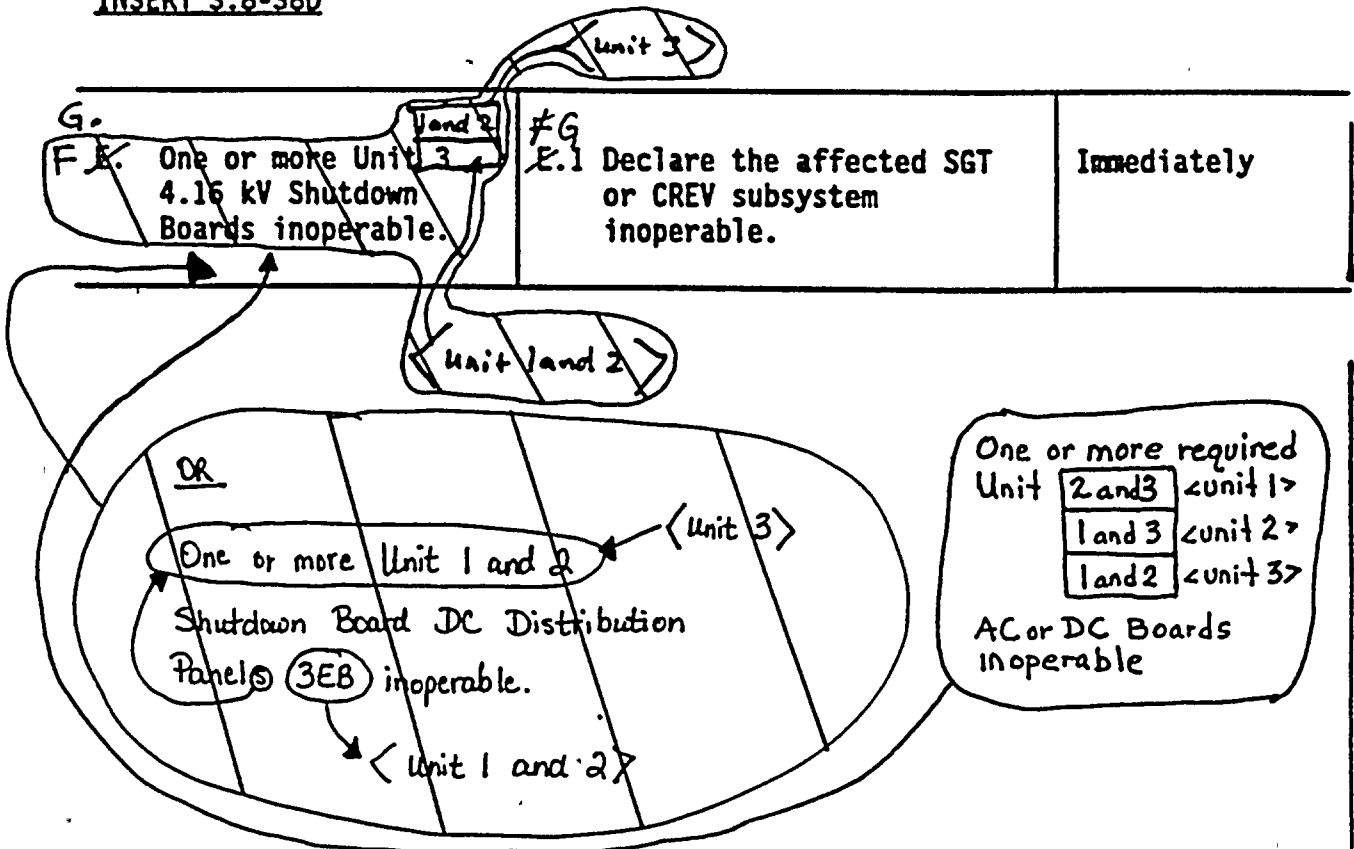 INSERT 3.8-38D
<Unit 3>
G.
F E. One or more Unit 3
1 and 2
4.16 kV Shutdown
Boards inoperable.
F G
E.1 Declare the affected SGT
or CREV subsystem
inoperable.
Immediately
<Unit 1 and 2>
OR
One or more Unit 1 and 2
<Unit 3>
Shutdown Board DC Distribution
Panels 3EB inoperable.
<Unit 1 and 2>
One or more required
Unit 2 and 3 <unit 1>
1 and 3 <unit 2>
1 and 2 <unit 3>
AC or DC Boards
inoperable